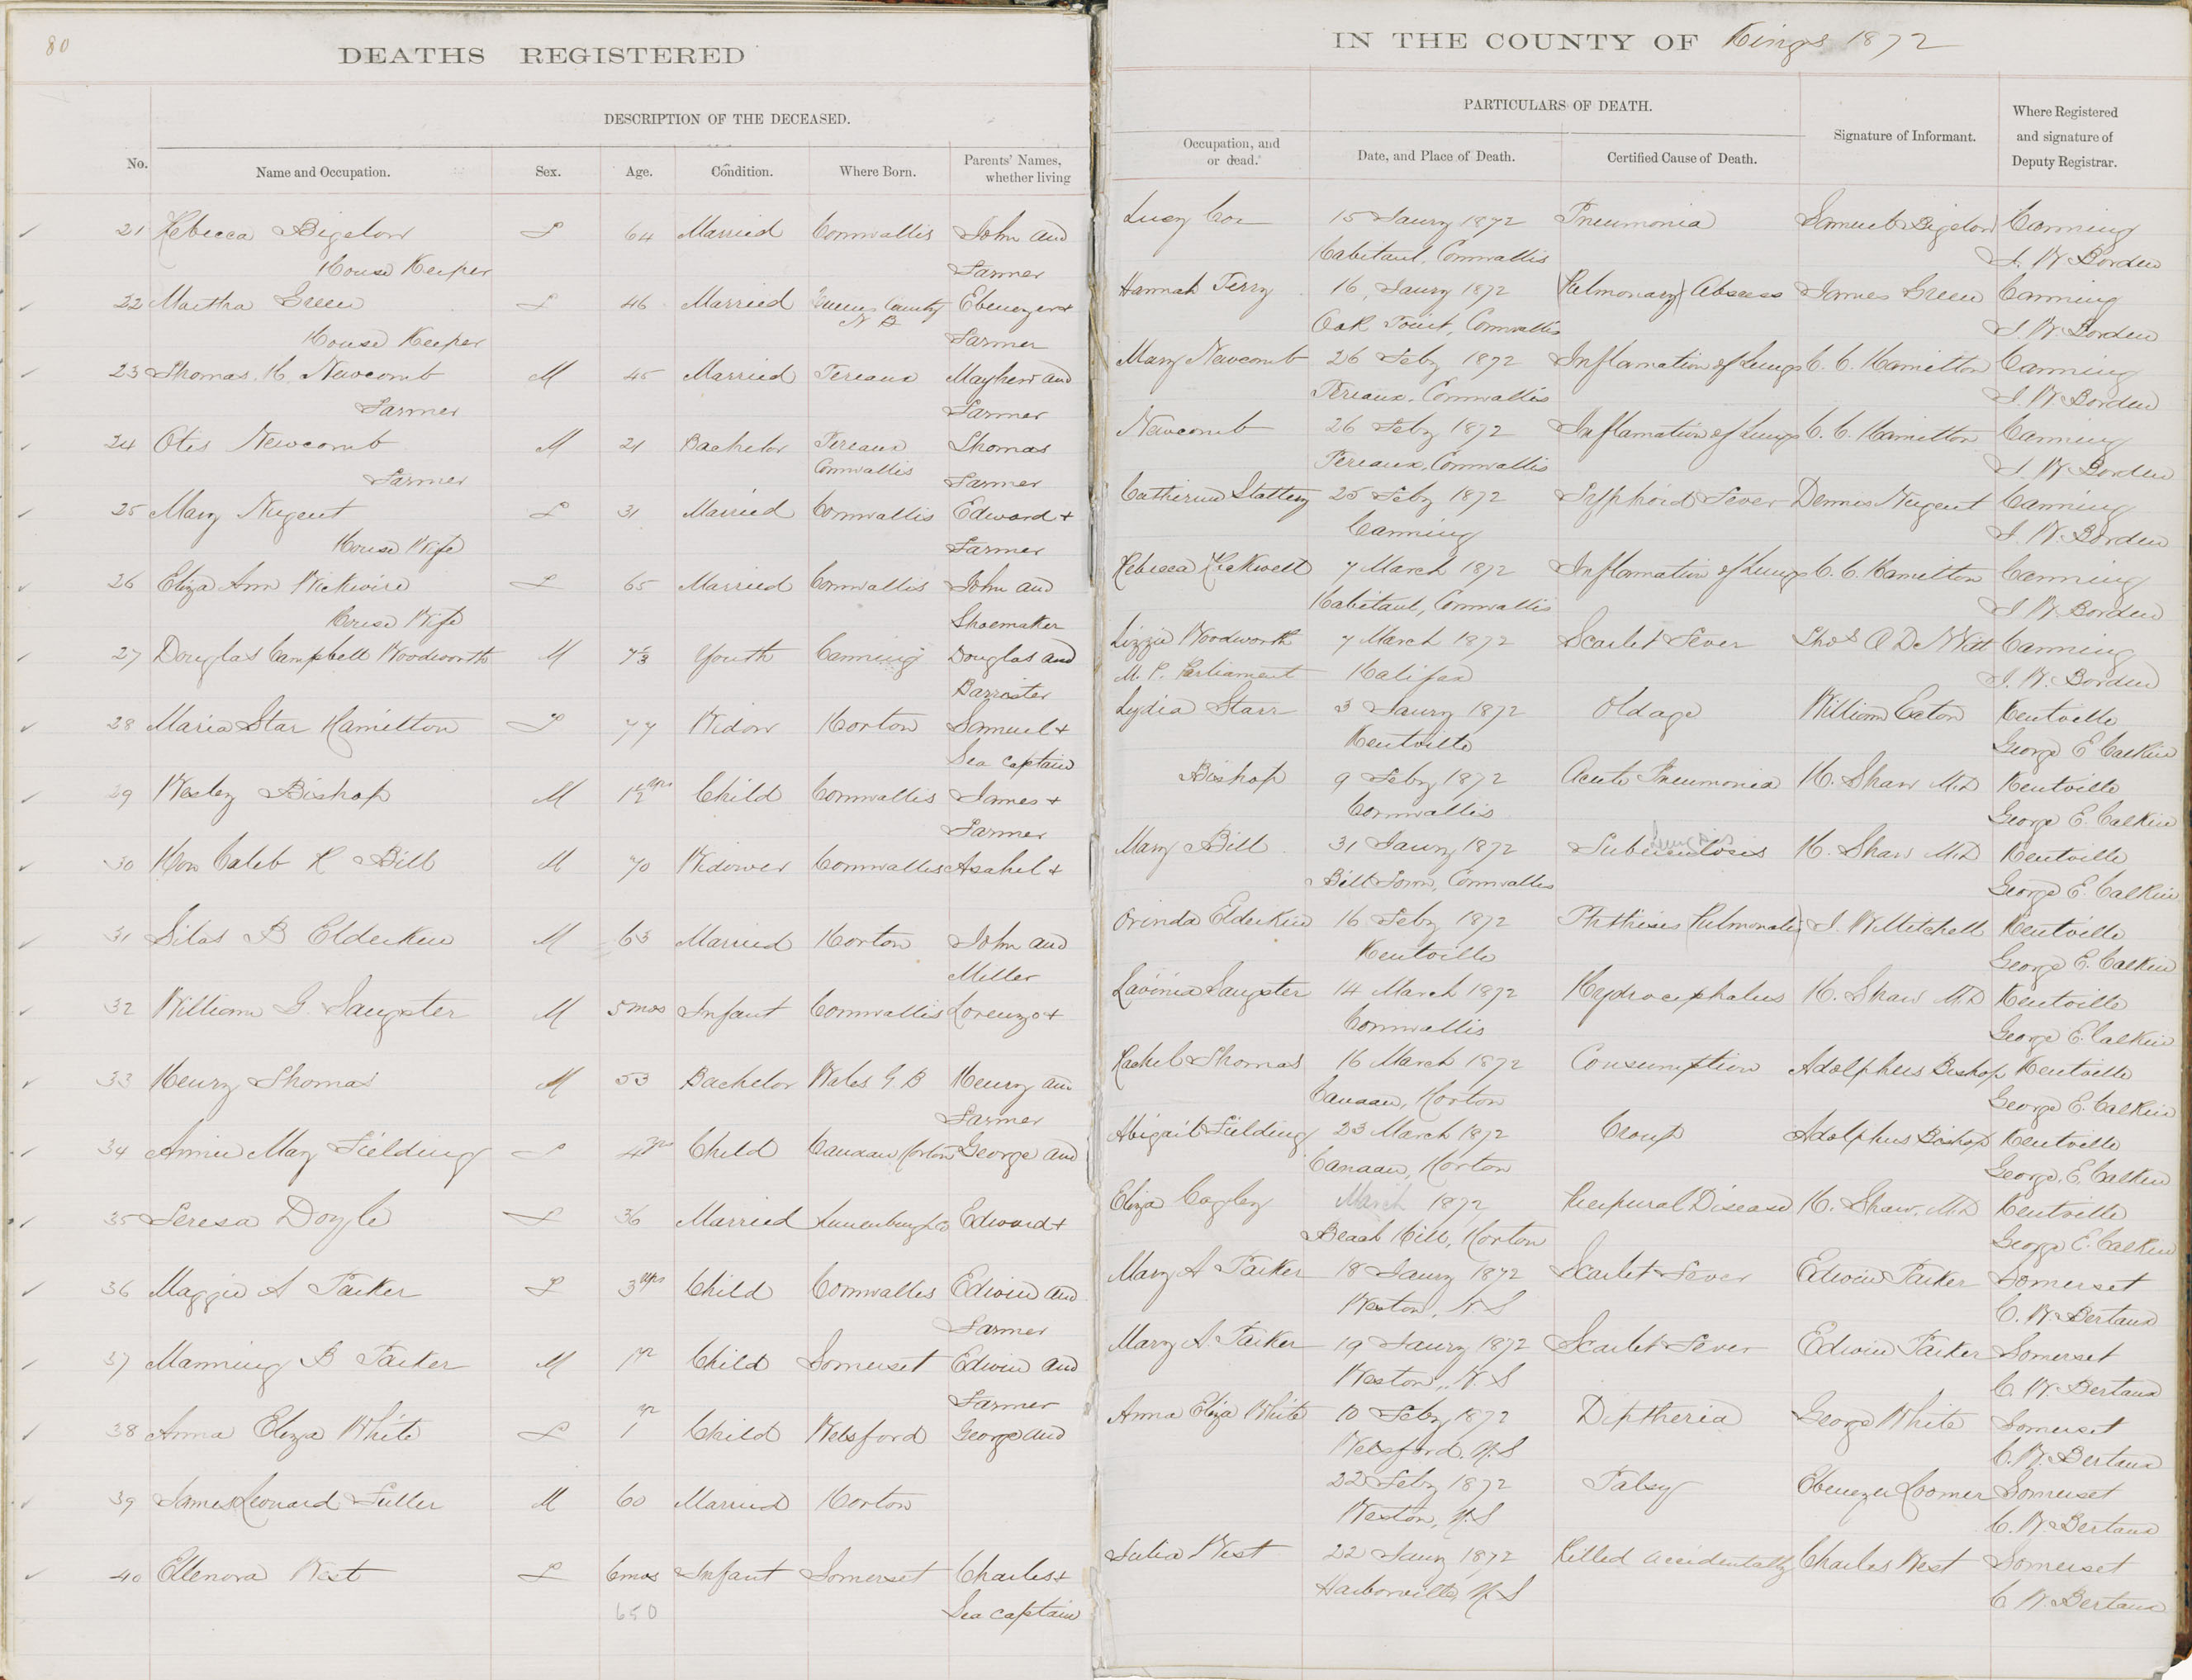 80
DEATHS REGISTERED
IN THE COUNTY OF Kings 1872
DESCRIPTION OF THE DECEASED.
PARTICULARS OF DEATH.
No.
Name and Occupation.
Sex.
Age.
Condition.
Where Born.
Parents' Names, whether living
Occupation, and or dead.
Date, and Place of Death.
Certified Cause of Death.
Signature of Informant.
Where Registered and signature of Deputy Registrar.
21 Rebecca Bigelow F 64 Married Cornwallis John and Lucy Cox 15 Jaury 1872 Pneumonia Samuel Bigelow Canning
House Keeper Farmer Habitant, Cornwallis J. W Borden
22 Martha Green F 46 Married Queens County N B Ebenezer + Hannah Perry 16, Jaury 1872 (Pulmonary) Abscess James Green Canning
House Keeper Farmer Oak Point, Cornwallis J W Borden
23 Thomas. H. Newcomb M 45 Married Pereaux Mayhew and Mary Newcomb 26 Feby 1872 Inflamation of Lungs C. C. Hamilton Canning
Farmer Farmer Pereaux, Cornwallis J W Borden
24 Otis Newcomb M 21 Bachelor Pereaux Cornwallis Thomas Newcomb 26 Feby 1872 Inflamation of Lungs C. C. Hamilton Canning
Farmer Farmer Pereaux, Cornwallis J. W. Borden
25 Mary Nugent F 31 Married Cornwallis Edward + Catherine Slattery 25 Feby 1872 Typhoid Fever Dennis Nugent Canning
House Wife Farmer Canning J. W. Borden
26 Eliza Ann Wickwire F 65 Married Cornwallis John and Rebecca 7 March 1872 Inflamation of Lungs C. C. Hamilton Canning
House Wife Shoemaker Habitant, Cornwallis J W Borden
27 Douglas Campbell Woodworth M Youth Canning Douglas and Lizzie Woodworth 7 March 1872 Scarlet Fever Thos A De Witt Canning
Barrister M. P. Parliament Halifax J. W. Borden
28 Maria Star Hamilton F 77 Widow Horton Samuel + Lydia Starr 3 Jaury 1872 Old age William Eaton Kentville
Sea Captain Kentville George E Calkin
29 Wesley Bishop M Child Cornwallis James + Bishop 9 Feby 1872 Acute Pneumonia H. Shaw M.D Kentville
Farmer Cornwallis George E. Calkin
30 Hon Caleb R Bill M 70 Widower Cornwallis Asahel + Mary Bill 31 Jaury 1872 Tuberculosis H. Shaw M.D Kentville
Bill Town, Cornwallis George E. Calkin
31 Silas B Elderkin M 63 Married Horton John and Orinda Elderkin 16 Feby 1872 Phthisis (Pulmonalis) J. W Mitchell Kentville
Miller Kentville George E. Calkin
32 William G. Sangster M 5 mos Infant Cornwallis Lorenzo + Lavinia Sangster 14 March 1872 Hydrocephalus H. Shaw M.D Kentville
Cornwallis George E. Calkin
33 Henry Thomas M 53 Bachelor Wales G B Henry and Rachel Thomas 16 March 1872 Consumption Adolphus Bishop Kentville
Farmer Canaan, Horton George E. Calkin
34 Annie May Fielding F 4 yrs Child Canaan Horton George and Abigail Fielding 23 March 1872 Croup Adolphus Bishop Kentville
Canaan, Horton George. E. Calkin
35 Teresa Doyle F 36 Married Lunenburg Co Edward + Eliza Cogley March 1872 Puerpural Disease H. Shaw. M.D Kentville
Beach Hill, Horton George E. Calkin
36 Maggie A Parker F 3 yrs Child Cornwallis Edwin and Mary A Parker 18 Jaury 1872 Scarlet Fever Edwin Parker Somerset
Farmer Weston, N. S C. W. Bertaux
37 Manning B Parker M 1 yr Child Somerset Edwin and Mary A. Parker 19 Jaury 1872 Scarlet Fever Edwin Parker Somerset
Farmer Weston, N. S C. W. Bertaux
38 Anna Eliza White F 1 yr Child Welsford George and Anna Eliza White 10 Feby 1872 Diptheria George White Somerset
Welsford. N.S C. W. Bertaux
39 James Leonard Fuller M 60 Married Horton 22 Feby 1872 Palsy Ebenezer Loomer Somerset
Weston, N.S C. W. Bertaux
40 Ellenora West F 6 mos Infant Somerset Charles + Julia West 22 Jaury 1872 Killed accidentally Charles West Somerset
650 Sea Captain Harborville, N. S C. W. Bertaux